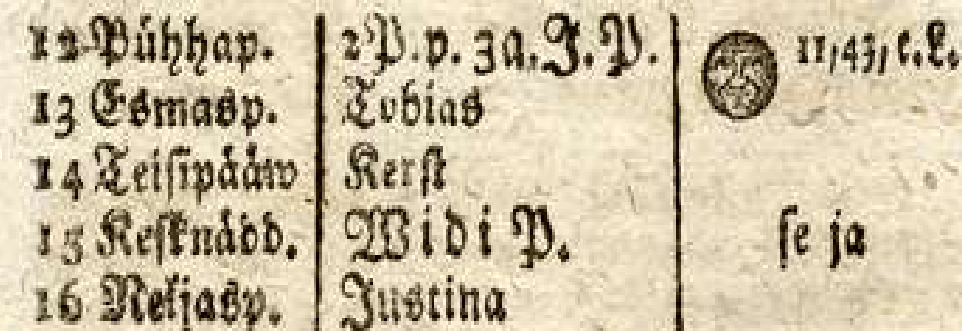 12 Pühhap. 2 P. p. 3 a. J. P. 11, 43, e. L.
13 Esmasp. Tobias
14 Teisipääw Kerst
15 Kesknädd. Widi P. se ja
16 Neljasp. Justina